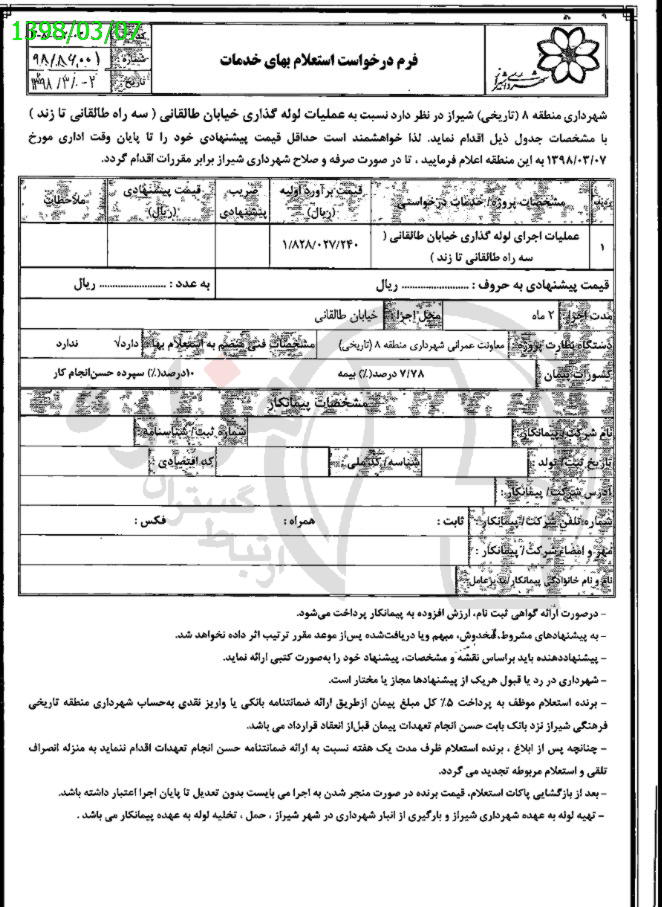 1398/03/07
۹۸/۸۹۰۰۱
شهرداری شیراز
فرم درخواست استعلام بهای خدمات
شهرداری منطقه ۸ (تاریخی) شیراز در نظر دارد نسبت به عملیات لوله گذاری خیابان طالقانی ( سه راه طالقانی تا زند )
با مشخصات جدول ذیل اقدام نماید. لذا خواهشمند است حداقل قیمت پیشنهادی خود را تا پایان وقت اداری مورخ
۱۳۹۸/۰۳/۰۷ به این منطقه اعلام فرمایید ، تا در صورت صرفه و صلاح شهرداری شیراز برابر مقررات اقدام گردد.
ردیف مشخصات پروژه/ خدمات درخواستی قیمت برآورد اولیه (ریال) ضریب پیشنهادی قیمت پیشنهادی (ریال) ملاحظات
۱ عملیات اجرای لوله گذاری خیابان طالقانی ( سه راه طالقانی تا زند ) ۱/۸۲۸/۰۲۷/۲۴۰
قیمت پیشنهادی به حروف : ........................ ریال به عدد : ........................ ریال
مدت اجرا: ۲ ماه محل اجرا: خیابان طالقانی
دستگاه نظارت پروژه: معاونت عمرانی شهرداری منطقه ۸ (تاریخی) مشخصات فنی منضم به استعلام بها: دارد√ ندارد
کسورات پیمان : ۷/۷۸ درصد(٪) بیمه ۱۰درصد(٪) سپرده حسن‌انجام کار
مشخصات پیمانکار
نام شرکت/ پیمانکار: شماره ثبت/ شناسنامه:
تاریخ ثبت/ تولد : شناسه/ کد ملی : کد اقتصادی :
آدرس شرکت/ پیمانکار:
شماره تلفن شرکت/ پیمانکار: ثابت : همراه : فکس :
مهر و امضاء شرکت/ پیمانکار :
نام و نام خانوادگی پیمانکار/مدیرعامل:
- درصورت ارائه گواهی ثبت نام، ارزش افزوده به پیمانکار پرداخت می‌شود.
- به پیشنهادهای مشروط، مخدوش، مبهم ویا دریافت‌شده پس‌از موعد مقرر ترتیب اثر داده نخواهد شد.
- پیشنهاددهنده باید براساس نقشه و مشخصات، پیشنهاد خود را به‌صورت کتبی ارائه نماید.
- شهرداری در رد یا قبول هریک از پیشنهادها مجاز یا مختار است.
- برنده استعلام موظف به پرداخت ۵٪ کل مبلغ پیمان ازطریق ارائه ضمانتنامه بانکی یا واریز نقدی به‌حساب شهرداری منطقه تاریخی
فرهنگی شیراز نزد بانک بابت حسن انجام تعهدات پیمان قبل‌از انعقاد قرارداد می باشد.
- چنانچه پس از ابلاغ ، برنده استعلام ظرف مدت یک هفته نسبت به ارائه ضمانتنامه حسن انجام تعهدات اقدام ننماید به منزله انصراف
تلقی و استعلام مربوطه تجدید می گردد.
- بعد از بازگشایی پاکات استعلام، قیمت برنده در صورت منجر شدن به اجرا می بایست بدون تعدیل تا پایان اجرا اعتبار داشته باشد.
- تهیه لوله به عهده شهرداری شیراز و بارگیری از انبار شهرداری در شهر شیراز ، حمل ، تخلیه لوله به عهده پیمانکار می باشد .